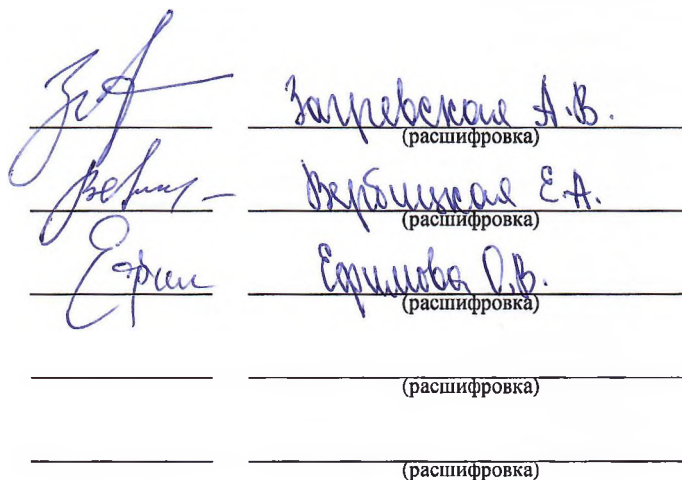 Загревская А.В.
(расшифровка)
Вербицкая Е.А.
(расшифровка)
Ефим Ефимова О.В.
(расшифровка)
(расшифровка)
(расшифровка)